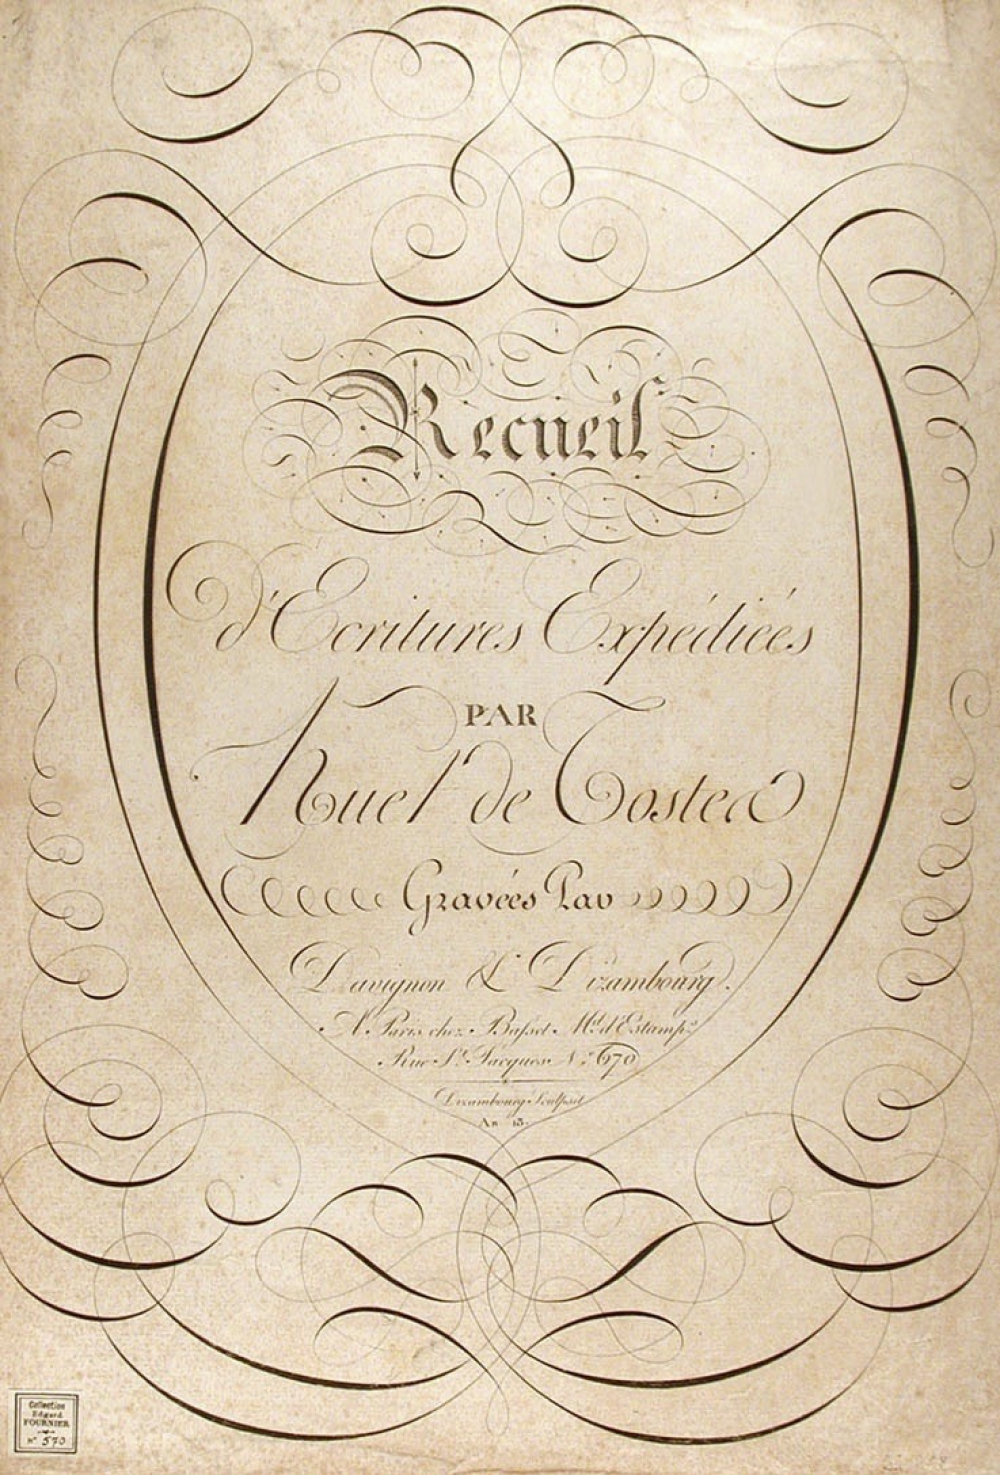 Recueil
d'Ecritures Expédiées
PAR
Huet de Tostea
Gravées Par
Davignon & Dizambourg.
A Paris chez Basset Md. d'Estampes
Rue St. Jacques No. 670
Dizambourg Sculpsit
An 13.
Collection
Edgard
FOURNIER
N° 570